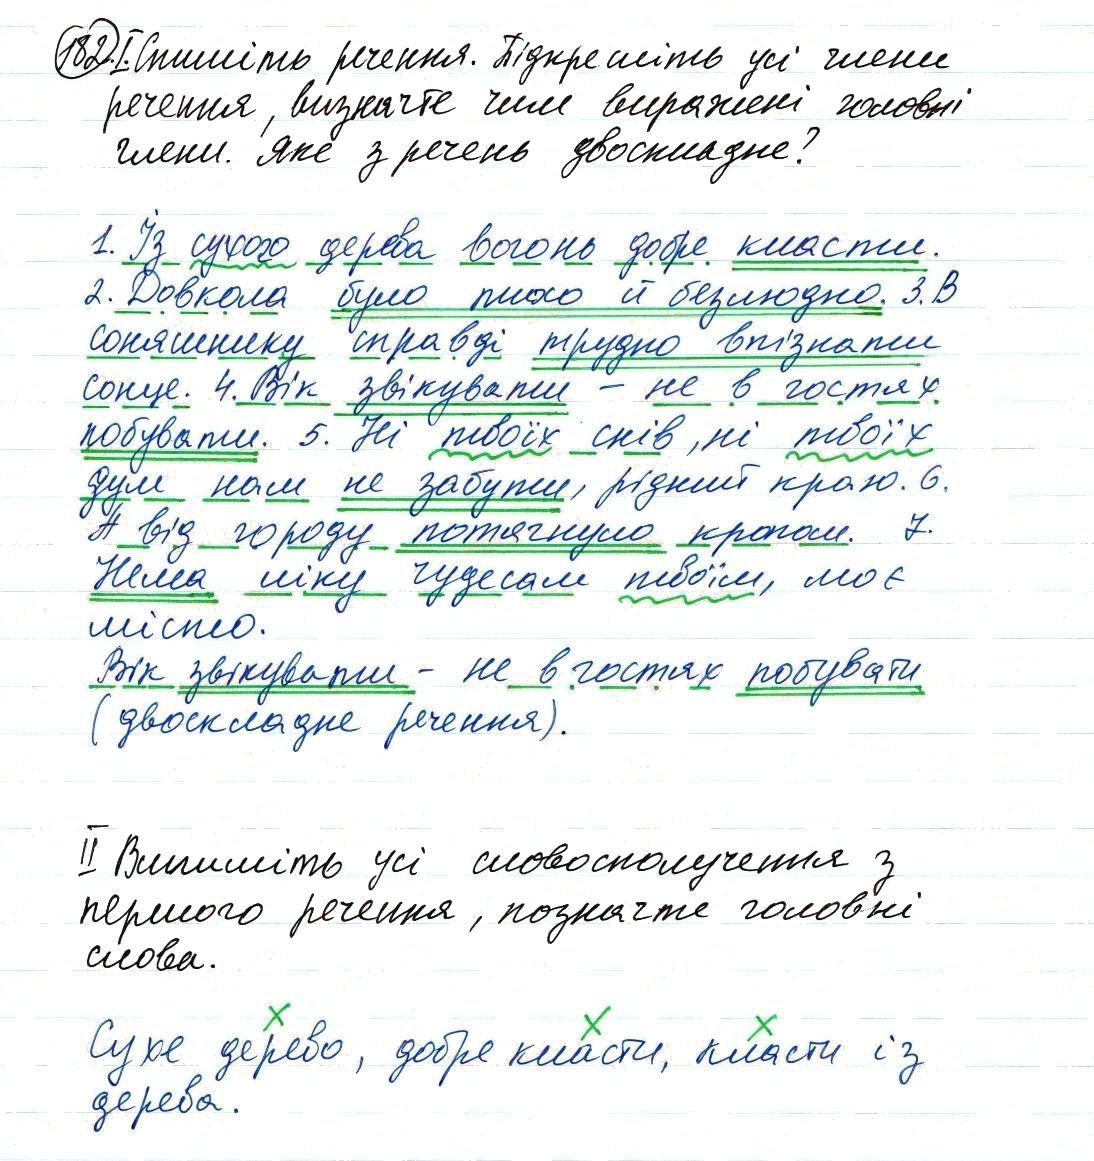 182. I. Спишіть речення. Підкресліть усі члени
речення, визначте чим виражені головні
члени. Яке з речень двоскладне?
1. Із сухого дерева вогонь добре класти.
2. Довкола було тихо й безлюдно. 3. В
соняшнику справді трудно впізнати
сонце. 4. Вік звікувати – не в гостях
побувати. 5. Ні твоїх снів, ні твоїх
дум нам не забути, рідний краю. 6.
А від городу потягнуло кропом. 7.
Нема ліку чудесам твоїм, моє
місто.
Вік звікувати – не в гостях побувати
(двоскладне речення).
II Випишіть усі словосполучення з
першого речення, позначте головні
слова.
Сухе дерево, добре класти, класти із
дерева.